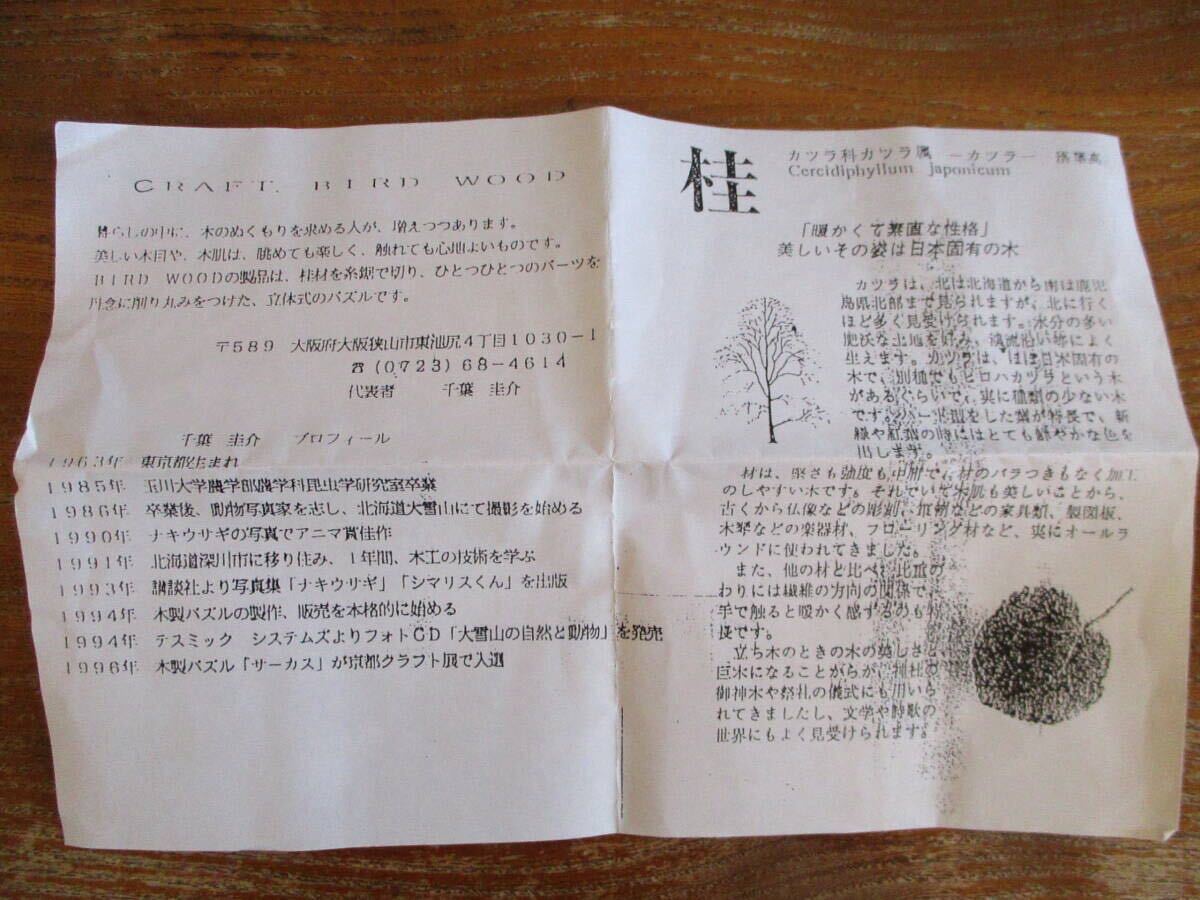 CRAFT BIRD WOOD
暮らしの中に、木のぬくもりを求める人が、増えつつあります。
美しい木目や、木肌は、眺めても楽しく、触れても心地よいものです。
BIRD WOODの製品は、桂材を糸鋸で切り、ひとつひとつのパーツを
丹念に削り丸みをつけた、立体式のパズルです。
〒589 大阪府大阪狭山市東池尻4丁目1030-1
☎(0723)68-4614
代表者 千葉 圭介
千葉 圭介 プロフィール
1963年 東京都生まれ
1985年 玉川大学農学部農学科昆虫学研究室卒業
1986年 卒業後、動物写真家を志し、北海道大雪山にて撮影を始める
1990年 ナキウサギの写真でアニマ賞佳作
1991年 北海道深川市に移り住み、1年間、木工の技術を学ぶ
1993年 講談社より写真集「ナキウサギ」「シマリスくん」を出版
1994年 木製パズルの製作、販売を本格的に始める
1994年 テスミック システムズよりフォトCD「大雪山の自然と動物」を発売
1996年 木製パズル「サーカス」が京都クラフト展で入選
桂
カツラ科カツラ属 ーカツラー 落葉高
Cercidiphyllum japonicum
「暖かくて素直な性格」
美しいその姿は日本固有の木
カツラは、北は北海道から南は鹿児
島県北部まで見られますが、北に行く
ほど多く見受けられます。水分の多い
肥沃な土地を好み、渓流沿い等によく
生えます。カツラは、ほぼ日本固有の
木で、別種でもヒロハカツラという木
があるぐらいで、実に種類の少ない木
です。ハート型をした葉が特長で、新
緑や紅葉の時にはとても鮮やかな色を
出します。
材は、堅さも強度も中庸で、材のバラつきもなく加工
のしやすい木です。それでいて木肌も美しいことから、
古くから仏像などの彫刻、箪笥などの家具類、製図板、
木琴などの楽器材、フローリング材など、実にオールラ
ウンドに使われてきました。
また、他の材と比べ、比重の
わりには繊維の方向の関係で、
手で触ると暖かく感ずるのも特
長です。
立ち木のときの木の美しさと
巨木になることがらが、神社の
御神木や祭礼の儀式にも用いら
れてきましたし、文学や詩歌の
世界にもよく見受けられます。